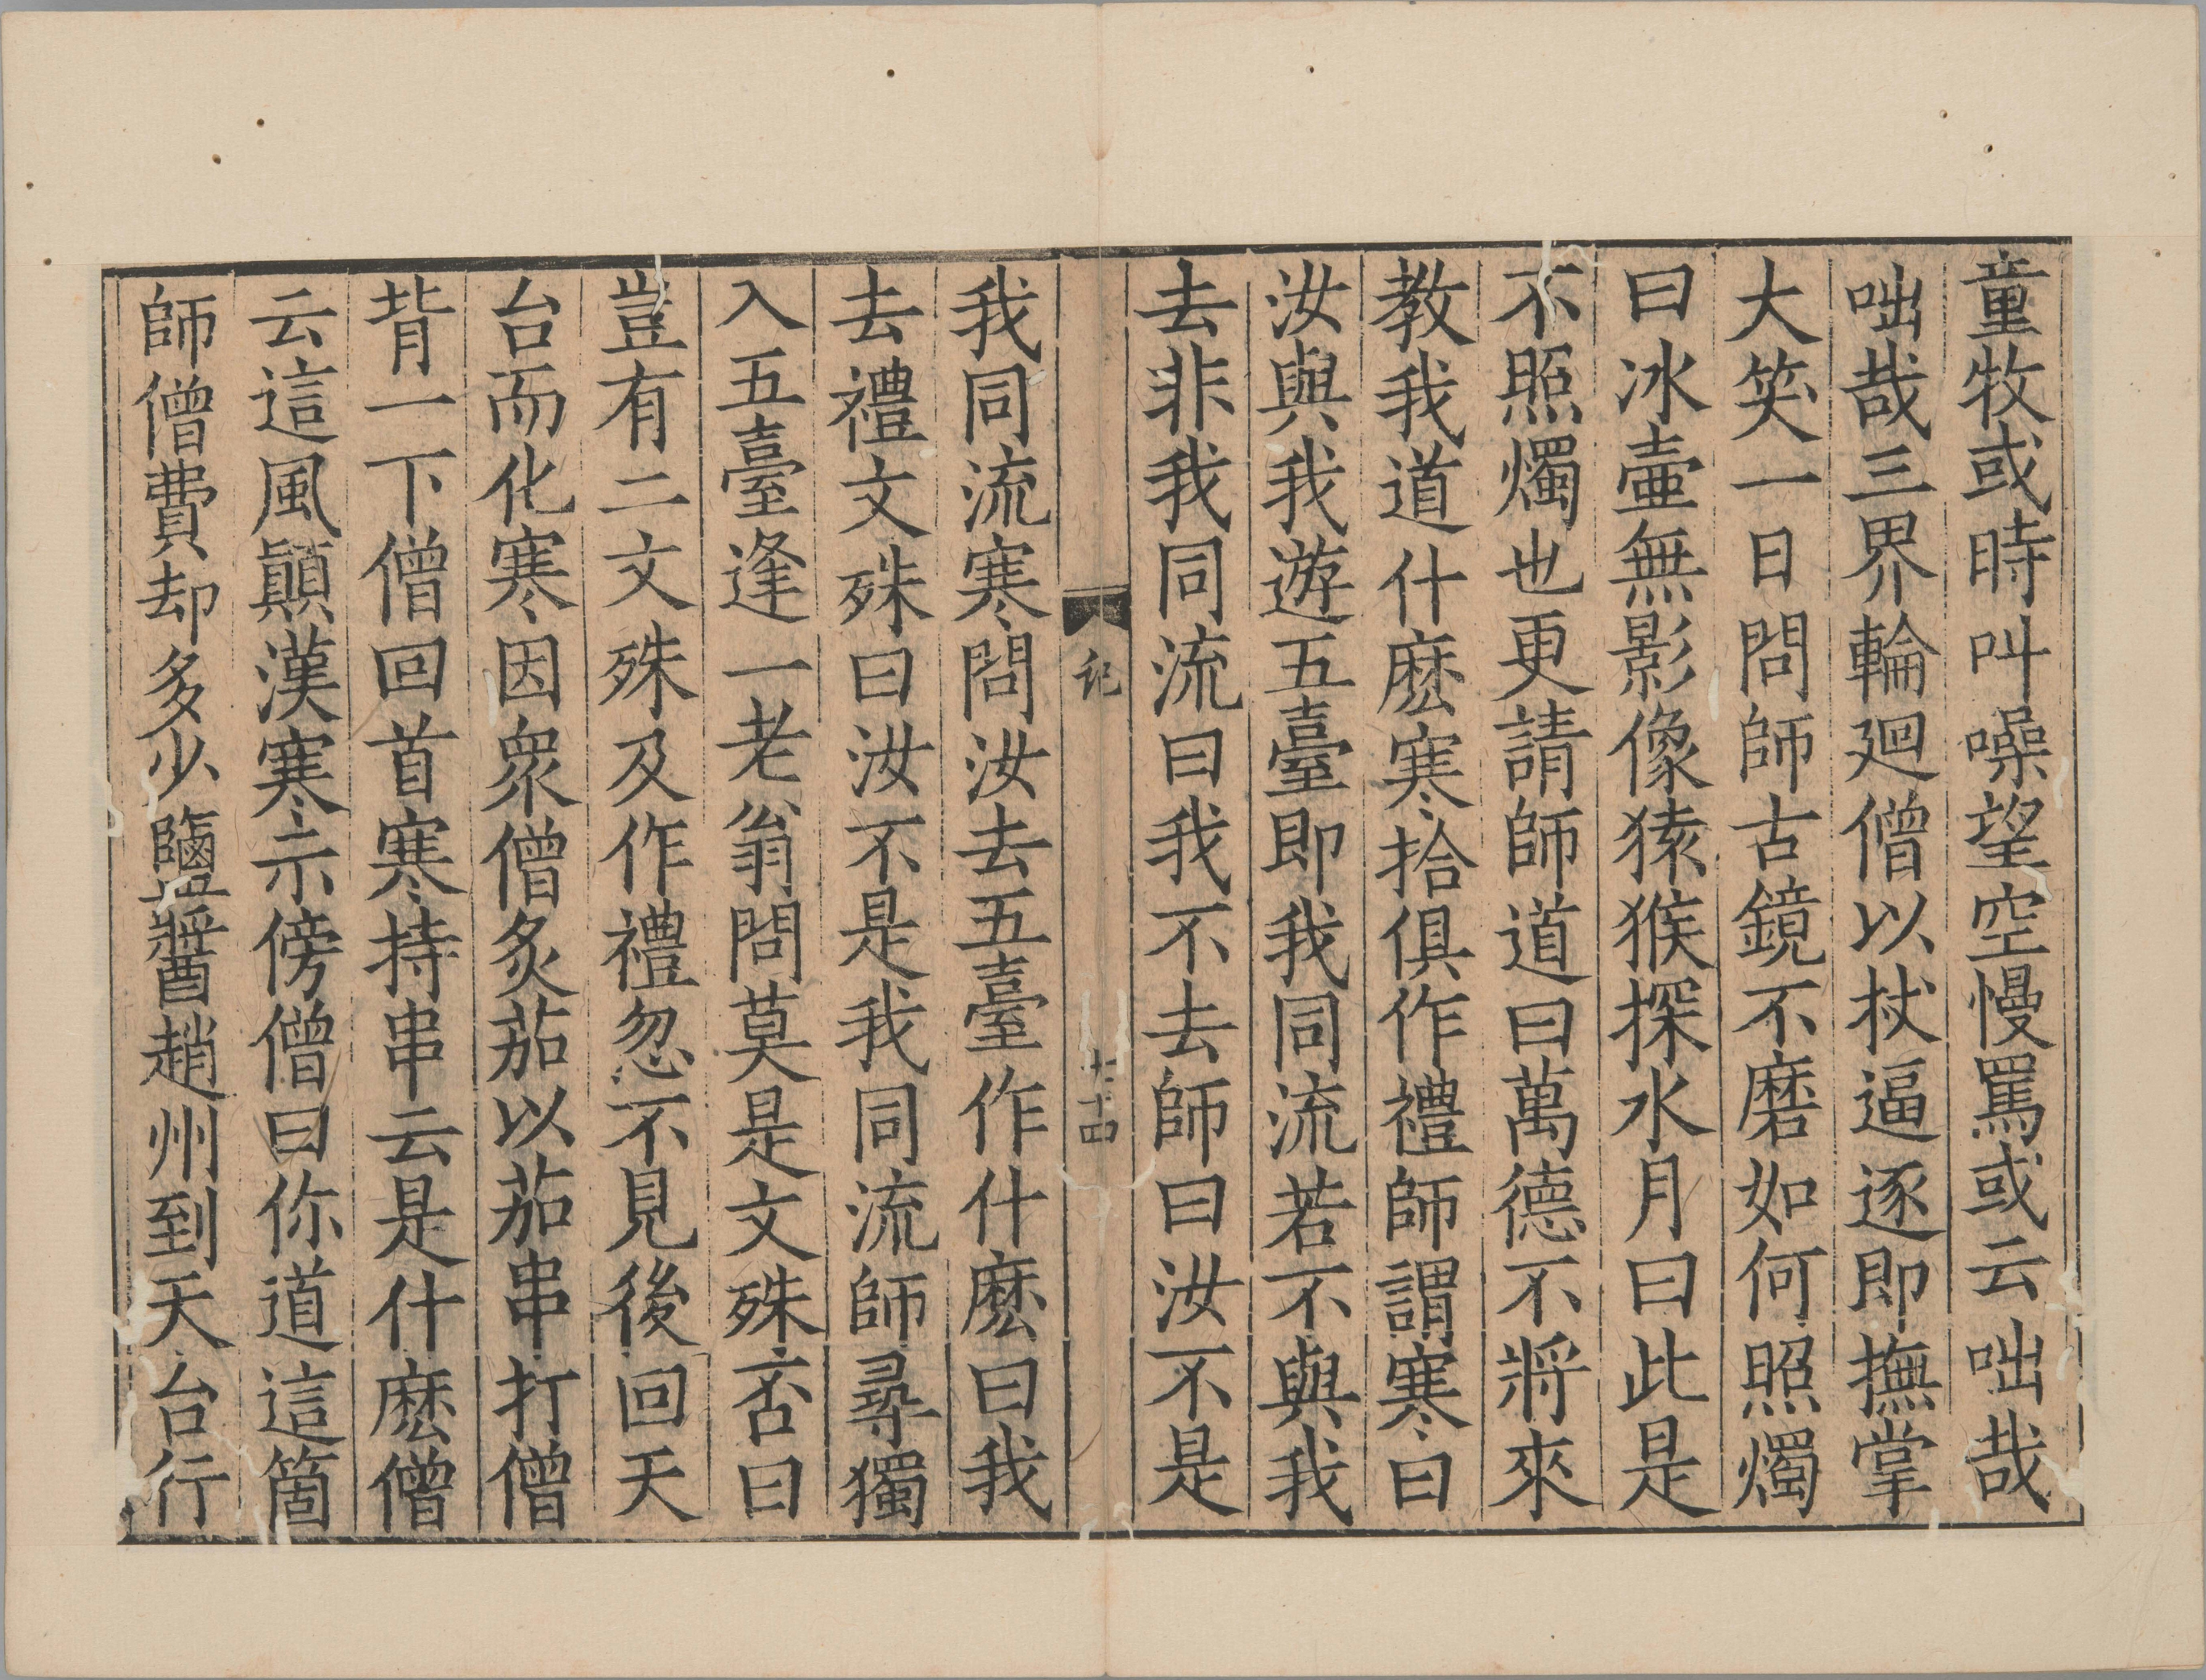 童牧或時叫噪望空慢罵或云咄哉
咄哉三界輪廻僧以杖逼逐即撫掌
大笑一日問師古鏡不磨如何照燭
曰冰壷無影像猿猴探水月曰此是
不照燭也更請師道曰萬德不將來
教我道什麽寒拾俱作禮師謂寒曰
汝與我遊五臺即我同流若不與我
去非我同流曰我不去師曰汝不是
記
十四
我同流寒問汝去五臺作什麽曰我
去禮文殊曰汝不是我同流師尋獨
入五臺逢一老翁問莫是文殊否曰
豈有二文殊及作禮忽不見後回天
台而化寒因衆僧炙茄以茄串打僧
背一下僧回首寒持串云是什麽僧
云這風顛漢寒示傍僧曰你道這箇
師僧費却多少鹽醬趙州到天台行